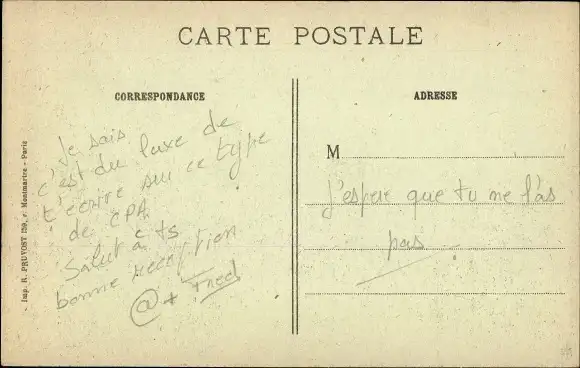 CARTE POSTALE
CORRESPONDANCE
Je sais
c'est du luxe de
t'écrire sur ce type
de CPA
Salut à ts
bonne réception
@+ Fred
ADRESSE
M
j'espere que tu ne l'as
pas
Imp. R. PRUVOST 159, r. Montmartre - Paris